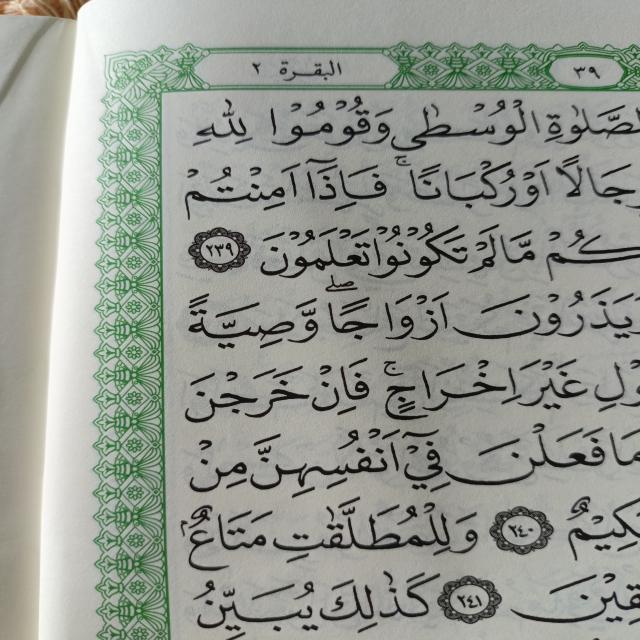 البقرة ٢
٣٩
الصَّلٰوةِ الْوُسْطٰى وَقُوْمُوْا لِلّٰهِ
رِجَالًا اَوْ رُكْبَانًا ۚ فَاِذَآ اَمِنْتُمْ
كُمْ مَّا لَمْ تَكُوْنُوْا تَعْلَمُوْنَ ﴿٢٣٩﴾
يَذَرُوْنَ اَزْوَاجًا ۖ وَّصِيَّةً
وْلِ غَيْرَ اِخْرَاجٍ ۚ فَاِنْ خَرَجْنَ
مَا فَعَلْنَ فِيْٓ اَنْفُسِهِنَّ مِنْ
كِيْمٌ ﴿٢٤٠﴾ وَلِلْمُطَلَّقٰتِ مَتَاعٌۢ
قِيْنَ ﴿٢٤١﴾ كَذٰلِكَ يُبَيِّنُ